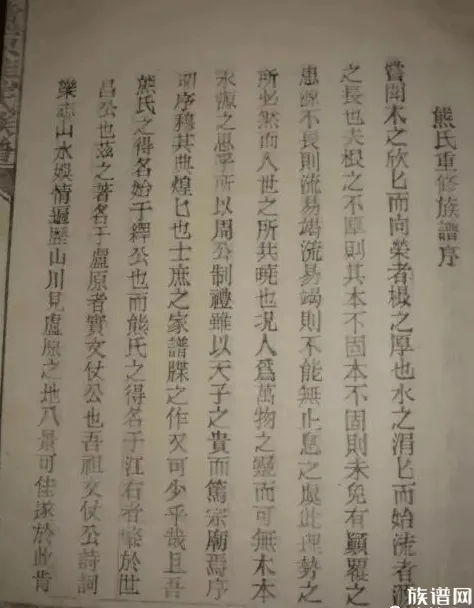 熊氏重修族譜序
嘗聞木之欣匕而向榮者根之厚也水之涓匕而始流者源
之長也夫根之不厚則其本不固本不固則未免有顛覆之
患源不長則流易竭流易竭則不能無止息之處此理勢之
所必然而人世之所共曉也况人爲萬物之靈而可無木本
水源之思乎所以周公制禮雖以天子之貴而篤宗廟焉序
昭序穆其典煌匕也士庶之家譜牒之作又可少乎哉且吾
熊氏之得名始于繹公也而熊氏之得名于江右者肇於世
昌公也茲之著名于盧原者實文仗公也吾祖文仗公詩詞
樂志山水娛情遍歷山川見盧原之地八景可佳遂於此肯
族谱网